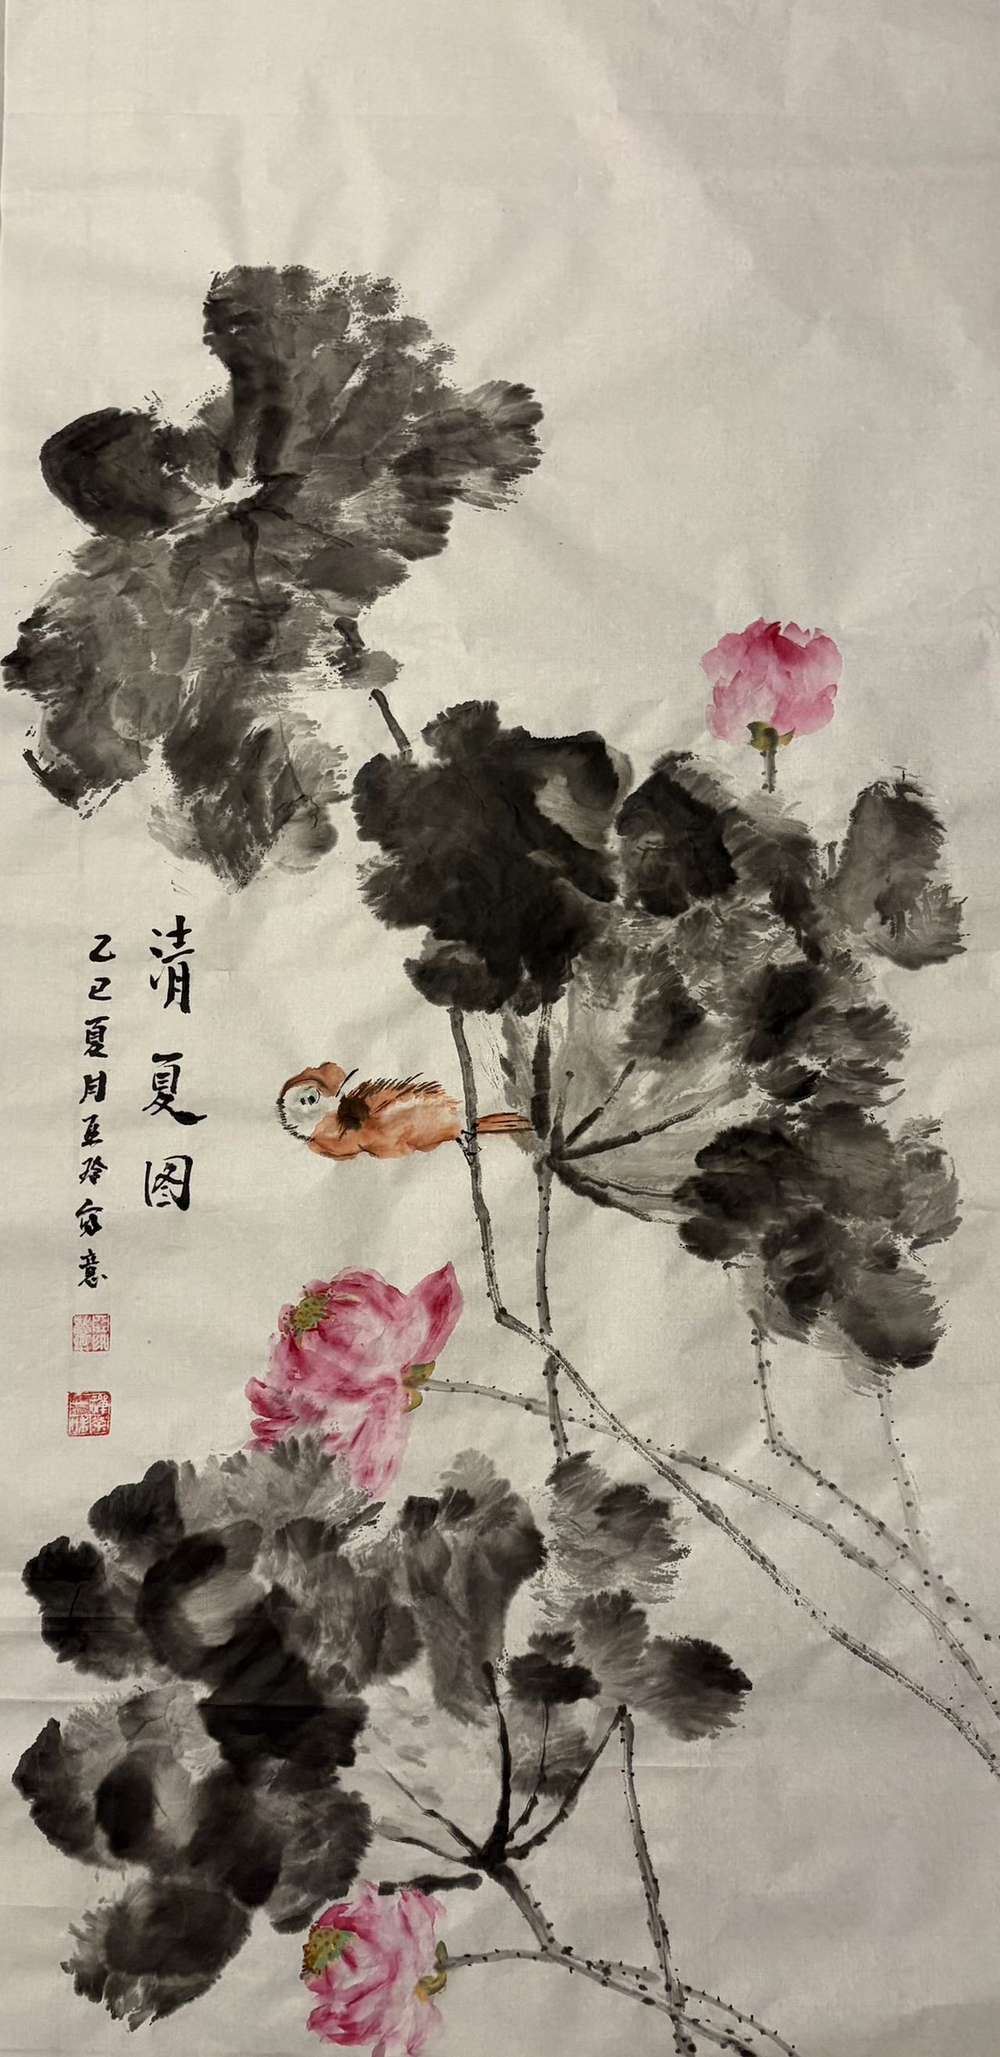 清夏图
乙巳夏月亚玲写意